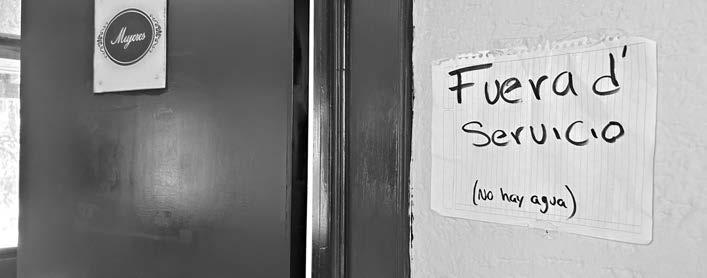 Mujeres
Fuera d'
Servicio
(No hay agua)